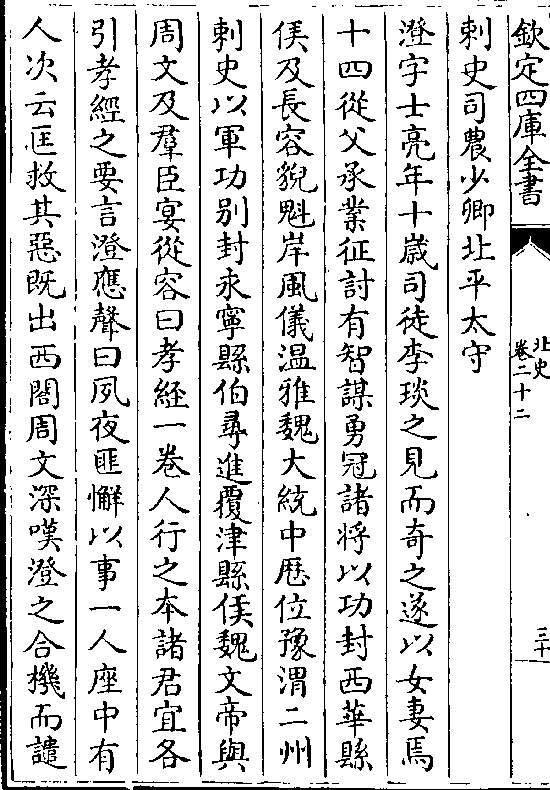 欽定四庫全書
北史
卷二十二
三十
刺史司農少卿北平太守
澄字士亮年十歲司徒李琰之見而奇之遂以女妻焉
十四從父承業征討有智謀勇冠諸將以功封西華縣
侯及長容貌魁岸風儀温雅魏大統中歴位豫渭二州
刺史以軍功别封永寧縣伯尋進覆津縣侯魏文帝與
周文及羣臣宴從容曰孝經一卷人行之本諸君宜各
引孝經之要言澄應聲曰夙夜匪懈以事一人座中有
人次云匡救其惡既出西閤周文深嘆澄之合機而譴